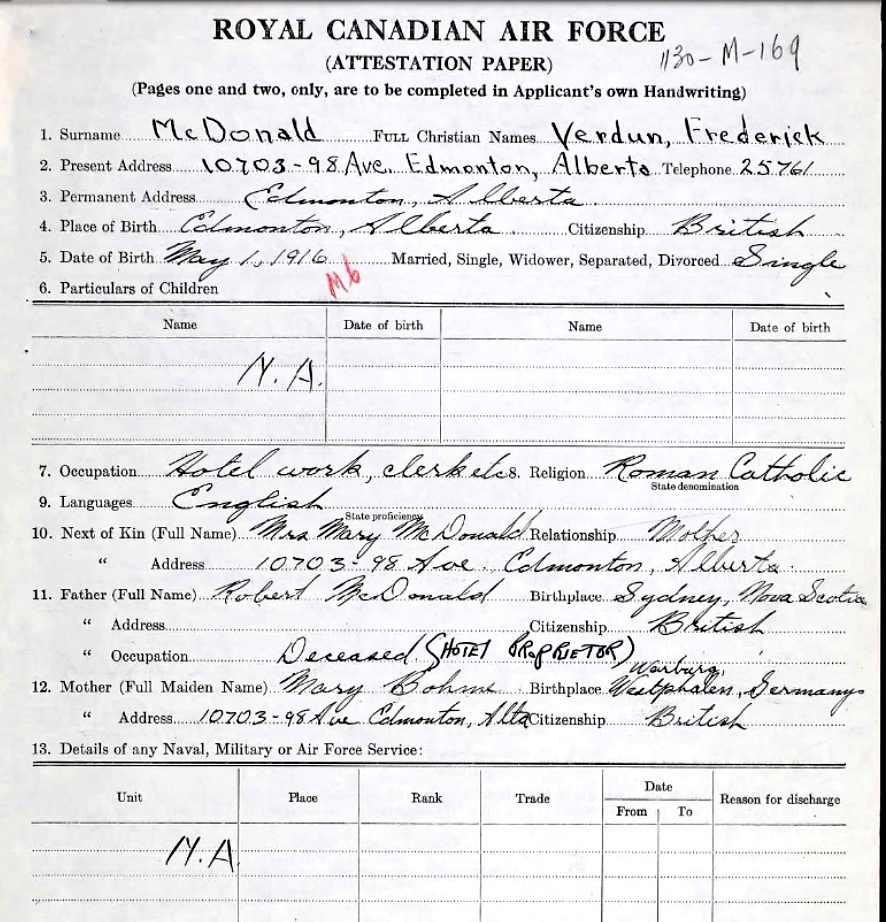 ROYAL CANADIAN AIR FORCE
1130-M-169
(ATTESTATION PAPER)
(Pages one and two, only, are to be completed in Applicant's own Handwriting)
1. Surname McDonald FULL Christian Names Verdun, Frederick
2. Present Address 10703-98 Ave. Edmonton, Alberta Telephone 25761
3. Permanent Address Edmonton, Alberta
4. Place of Birth Edmonton, Alberta Citizenship British
5. Date of Birth May 1, 1916 Married, Single, Widower, Separated, Divorced Single
M6
6. Particulars of Children
Name Date of birth Name Date of birth
N.A.
7. Occupation Hotel work, clerk etc 8. Religion Roman Catholic
State denomination
9. Languages English
State proficiency
10. Next of Kin (Full Name) Mrs Mary McDonald Relationship Mother
" Address 10703-98 Ave. Edmonton, Alberta.
11. Father (Full Name) Robert McDonald Birthplace Sydney, Nova Scotia
" Address Citizenship British
" Occupation Deceased. (HOTEL PROPRIETOR)
Warburg,
12. Mother (Full Maiden Name) Mary Bohme Birthplace Westphalen, Germany
" Address 10703-98 Ave Edmonton, Alta Citizenship British
13. Details of any Naval, Military or Air Force Service:
Unit Place Rank Trade Date Reason for discharge
From To
N.A.